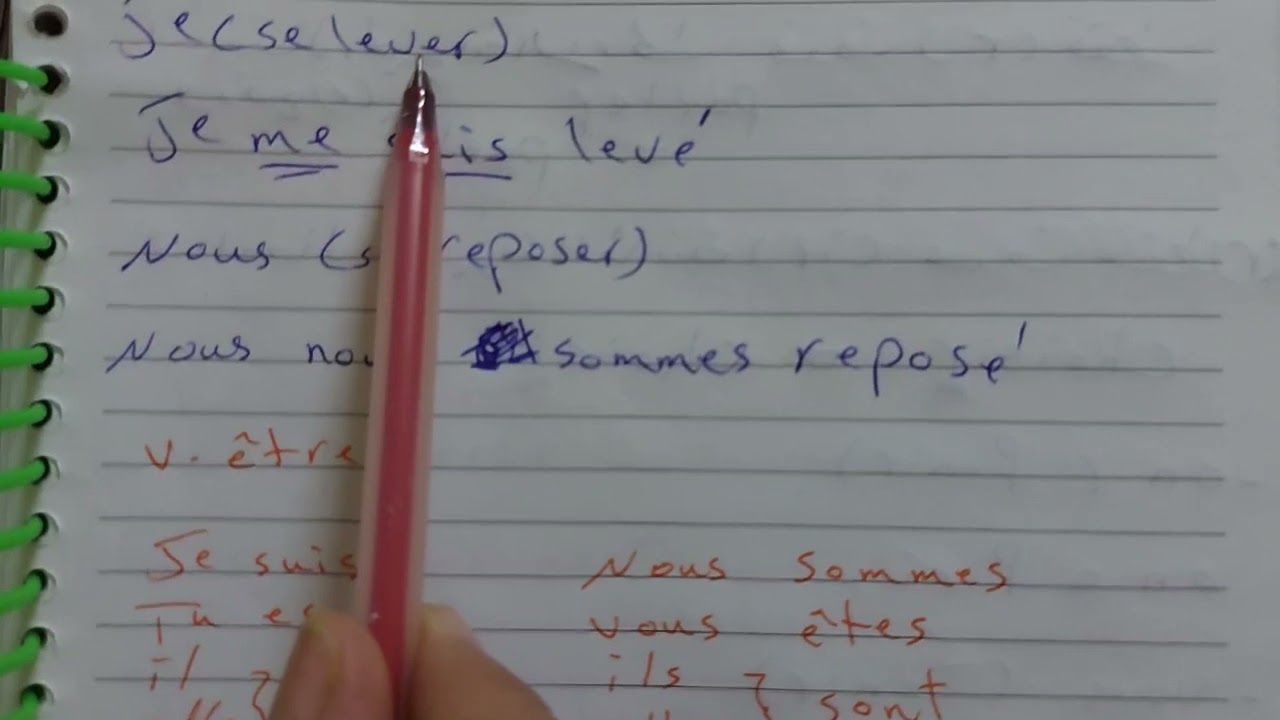 je (se lever)
Je me suis levé
Nous (se reposer)
Nous nous sommes reposé
v. être
Je suis Nous sommes
Tu es vous êtes
il } ils } sont